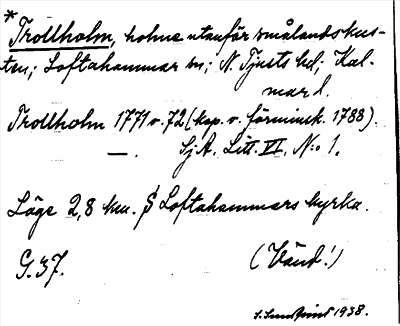 *
Trollholm, holme utanför smålandskus-
ten; Loftahammar sn; N. Tjusts hd; Kal-
mar l.
Trollholm 1771 v. 72 (kop. v. förminsk. 1788).
— . Sj A. Litt. VI. N:o 1.
Läge 2,8 km. S Loftahammars kyrka.
G. 37.
(Vänd!)
1938.